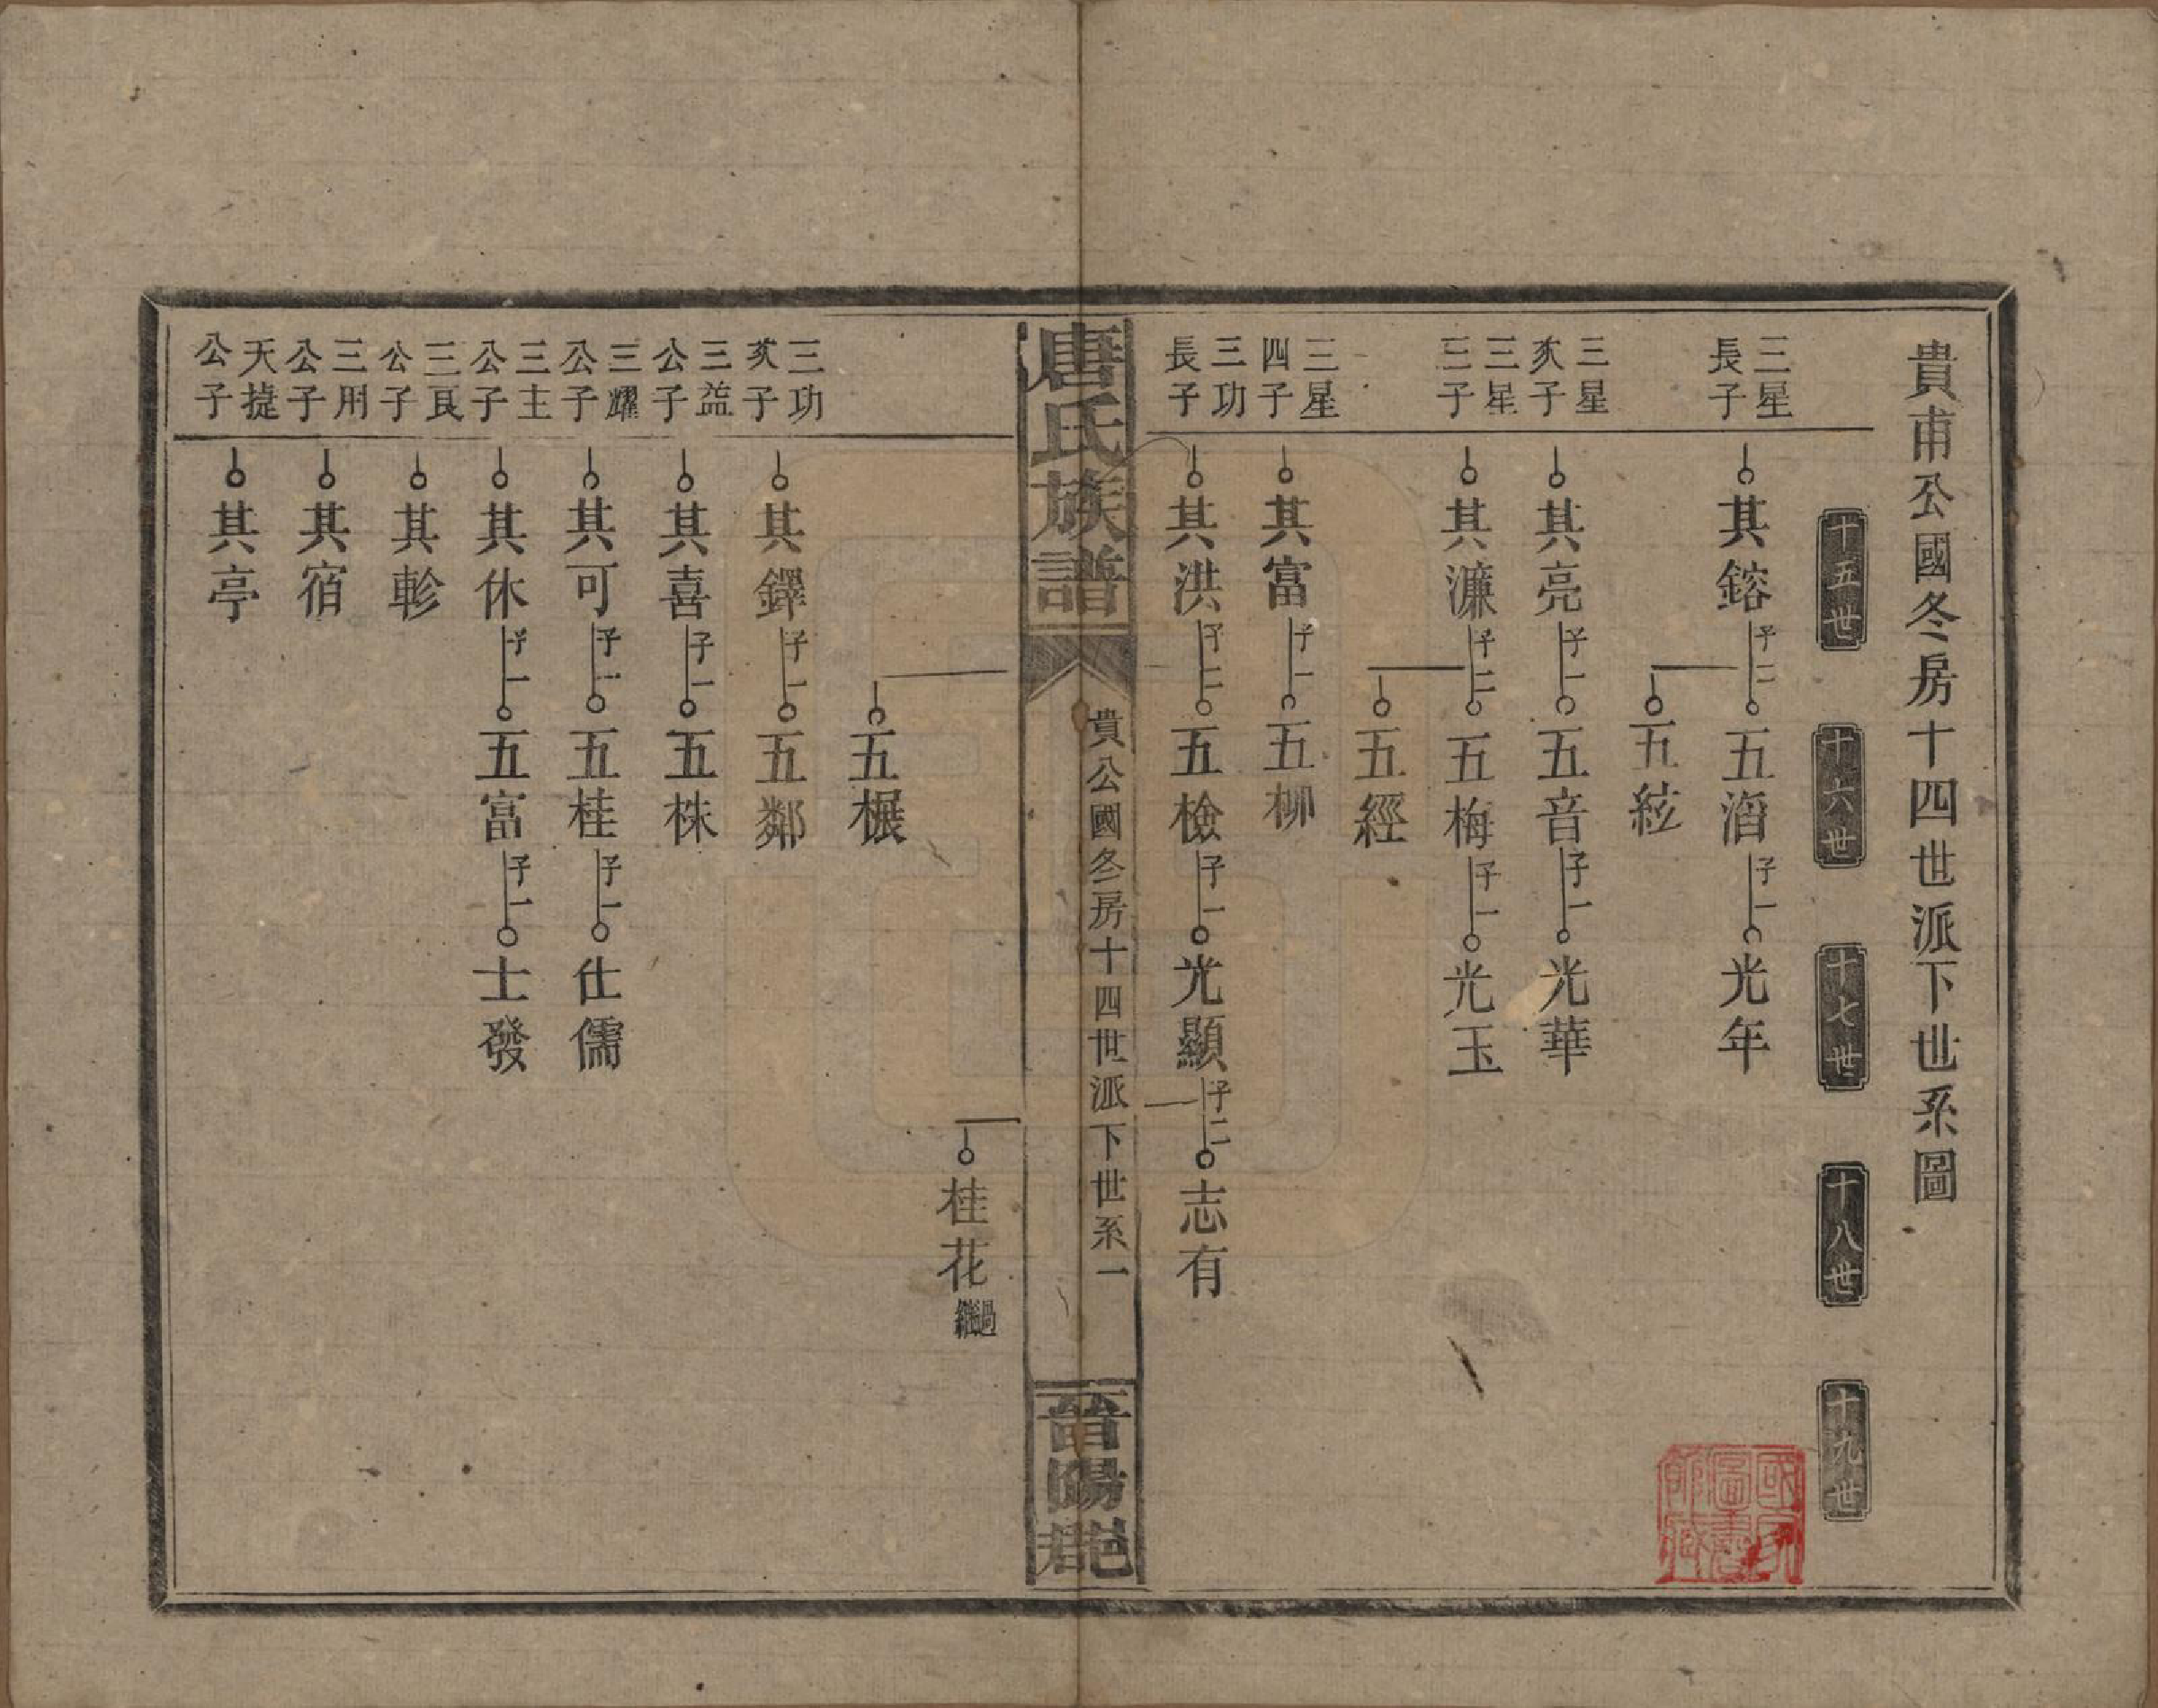 貴甫公國冬房十四世派下世系圖
十五世 十六世 十七世 十八世 十九世
三星長子 其鎔 子二 五滔 子一 光年
五紘
三星亥子 其亮 子一 五音 子一 光華
三星三子 其濂 子二 五梅 子一 光玉
五經
三星四子 其富 子一 五柳
三功長子 其洪 子二 五檢 子一 光顯 子二 志有
唐氏族譜 貴公國冬房十四世派下世系一 晉陽郡
桂花 過繼
五榐
三功亥子 其鐸 子一 五鄰
三益公子 其喜 子一 五株
三耀公子 其可 子一 五桂 子一 仕儒
三主公子 其休 子一 五富 子一 士發
三良公子 其軫
三用公子 其宿
天㨗公子 其亭
國家圖書館藏